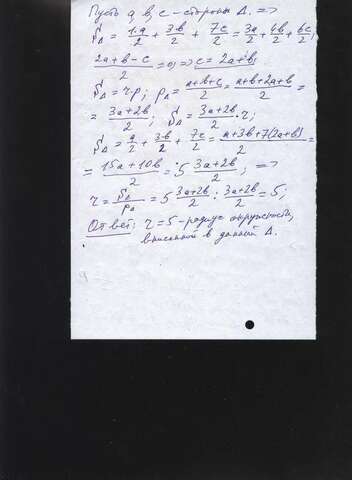 Пусть a, b, c – стороны Δ. =>
S_Δ = 1·a/2 + 3b/2 + 7c/2 = 3a/2 + 4b/2 + 6c/2;
(2a+b-c)/2 = 0; => c = 2a+b;
S_Δ = rp; p_Δ = (a+b+c)/2 = (a+b+2a+b)/2 =
= (3a+2b)/2; S_Δ = (3a+2b)/2 · r;
S_Δ = a/2 + 3b/2 + 7c/2 = (a+3b+7(2a+b))/2 =
= (15a+10b)/2 = 5 (3a+2b)/2; =>
r = S_Δ/p_Δ = 5 (3a+2b)/2 : (3a+2b)/2 = 5;
Ответ: r = 5 – радиус окружности,
вписанной в данный Δ.